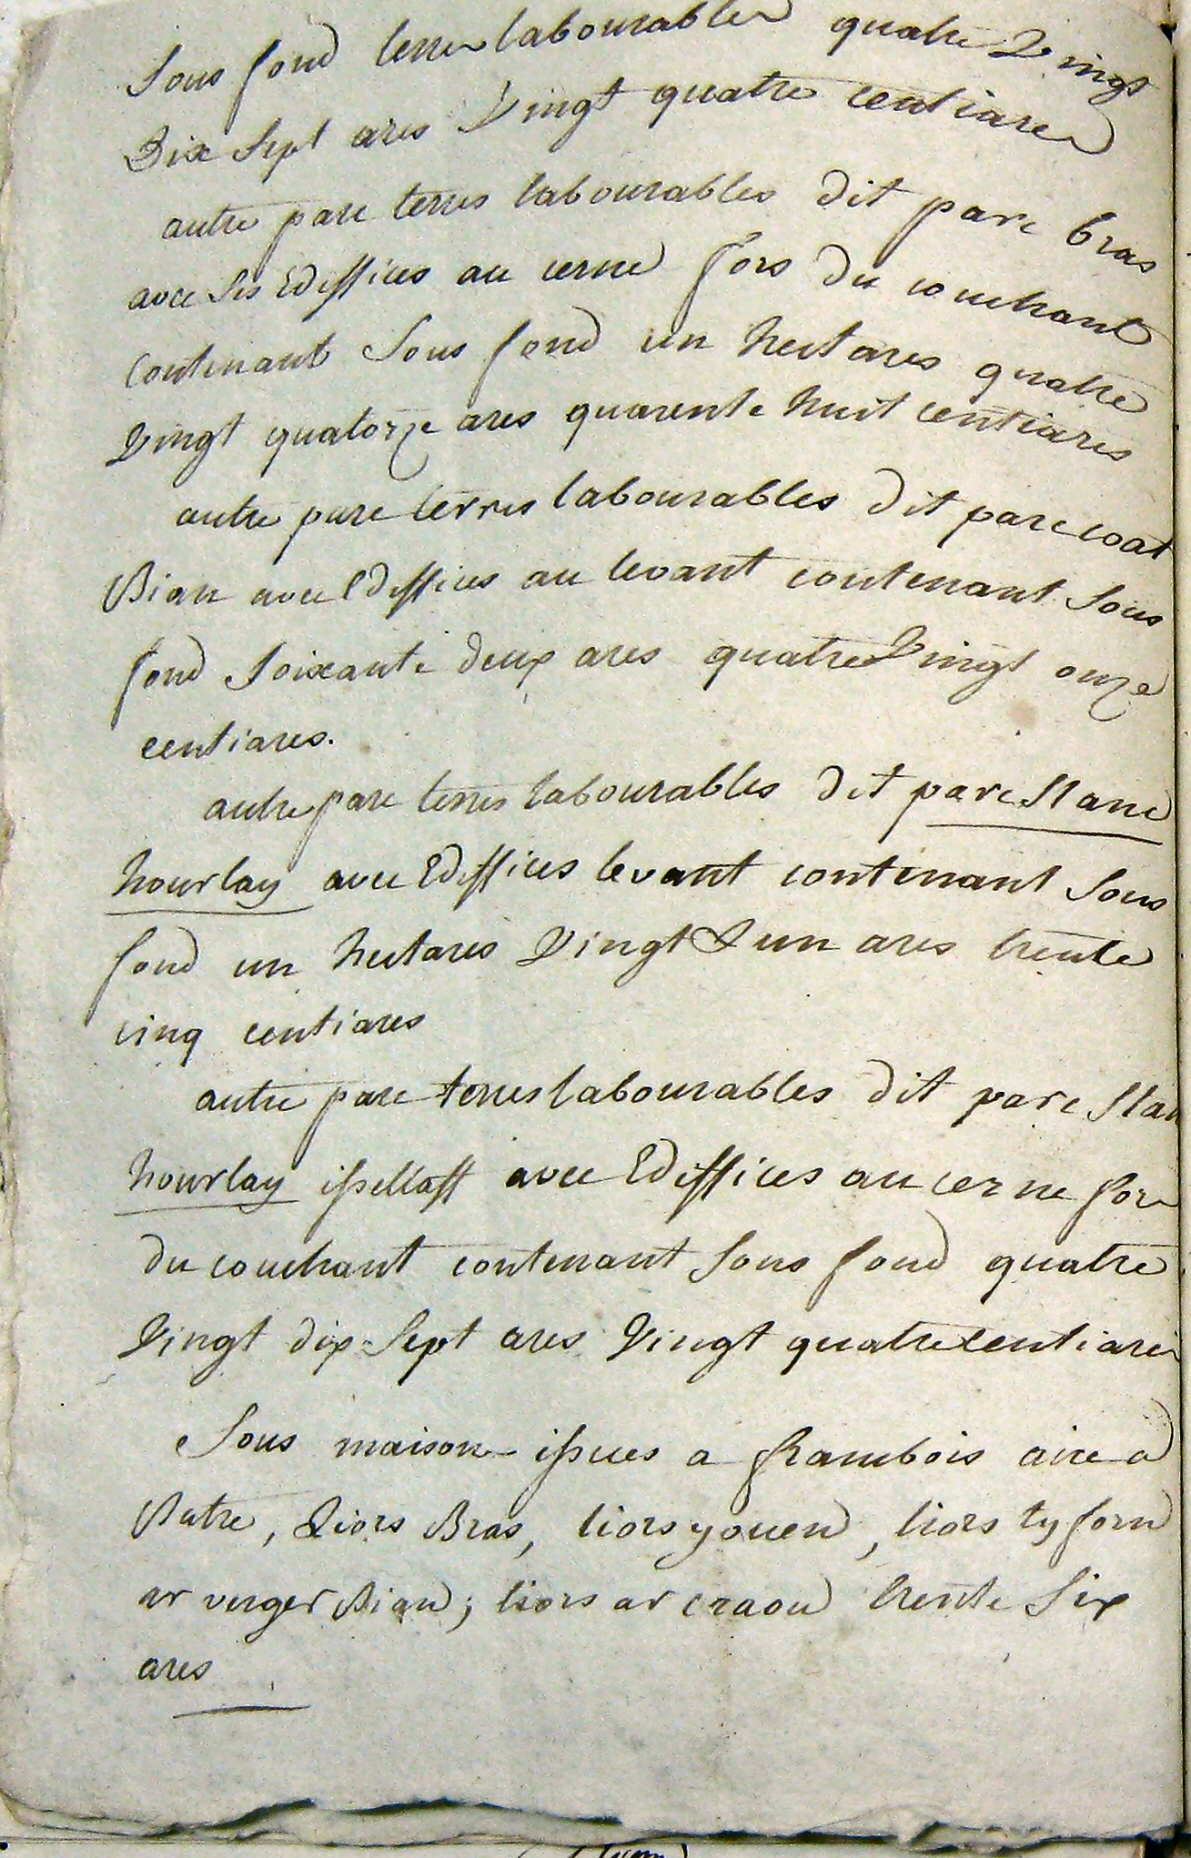 Sous fond terres labourables quatre Vingt
Dix Sept ares Vingt quatre centiares
autre parc terres labourables dit parc bras
avec Ses Ediffices au cerne fors du couchant
Contenant Sous fond un hectares quatre
Vingt quatorze ares quarente huit centiares
autre parc terres labourables dit parc coat
Bian avec Ediffices au levant contenant Sous
fond Soixante deux ares quatre Vingt onze
centiares.
autre parc terres labourables dit parc Stanc
hourlay avec Ediffices levant contenant Sous
fond un hectares Vingt & un ares trente
cinq centiares
autre parc terres labourables dit parc Stan
hourlay issellaff avec Ediffices au cerne fors
du couchant contenant Sous fond quatre
Vingt dix Sept ares Vingt quatre centiares
Sous maison issues a frambois aire a
Batre, Liors Bras, liors youen, liors ty forn
ar verger Bian; liors ar craou trente Six
ares